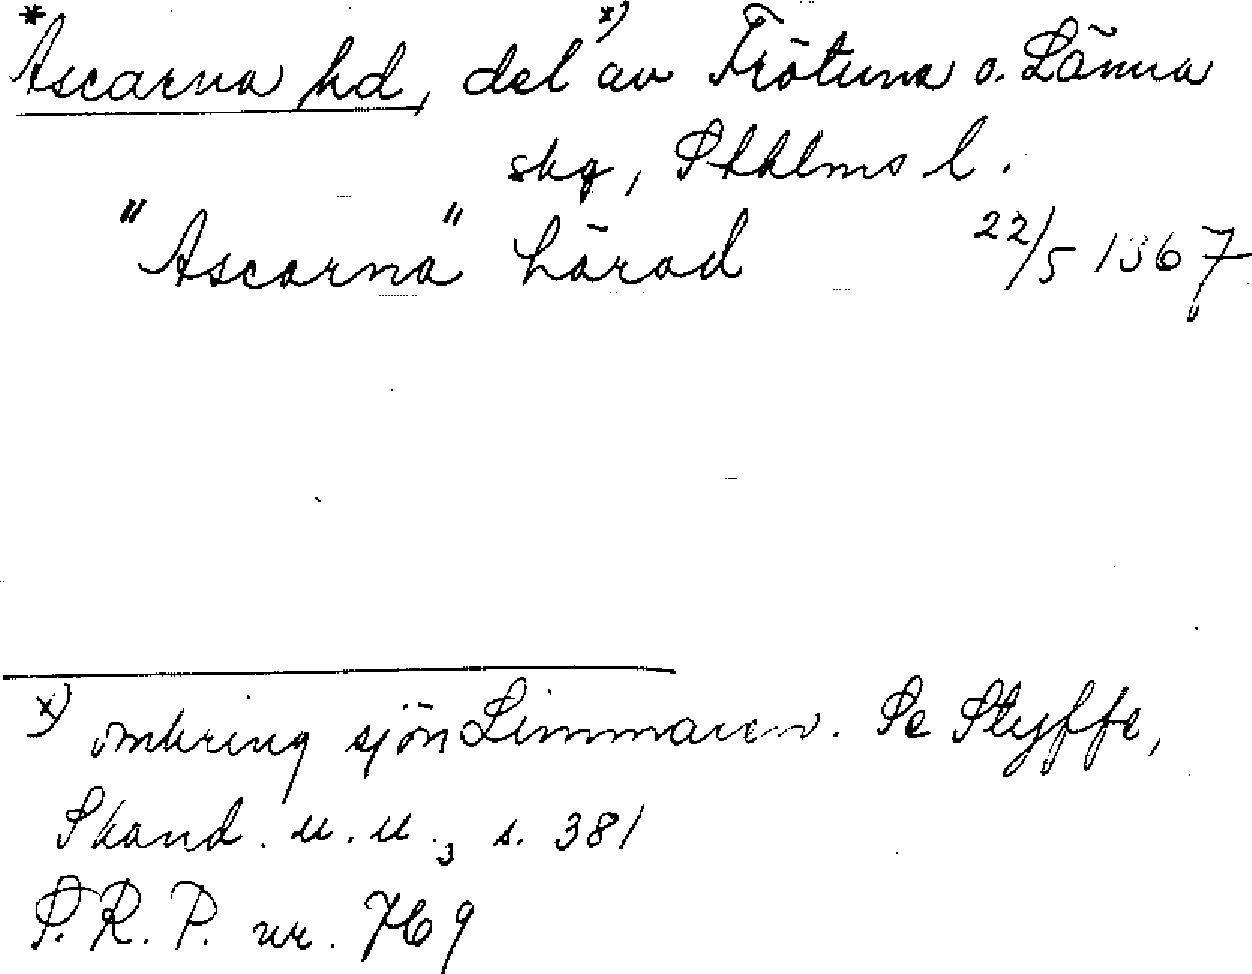 *Ascarna hd, del x) av Frötuna o. Länna
skg, Sthlms l.
"Ascarna" härad 22/5 1367
x) omkring sjön Limmaren. Se Styffe,
Skand. u. u., s. 381
P.R.P. nr. 769